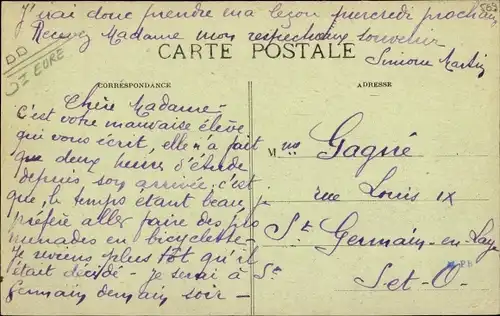 J'irai donc prendre ma leçon mercredi prochain.
Recevez Madame mon respectueux souvenir
Simone Martin
CARTE POSTALE
DD
St EURE
CORRESPONDANCE
ADRESSE
Chère Madame -
C'est votre mauvaise élève
qui vous écrit, elle n'a fait
que deux heures d'étude
depuis son arrivée, c'est
que, le temps étant beau, je
préfère aller faire des pro
menades en bicyclette -
Je reviens plus tôt qu'il
était décidé - je serai à St
Germain demain soir -
Mme Gagné
rue Louis IX
St Germain-en-Laye
Set-O.